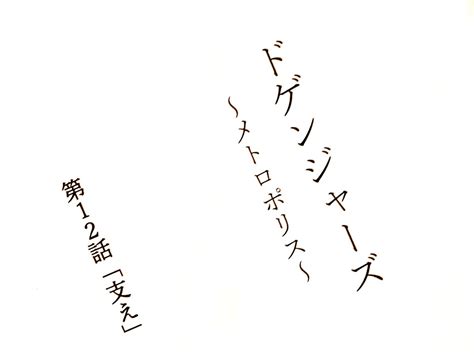 ドゲンジャーズ
～メトロポリス～
第12話「支え」